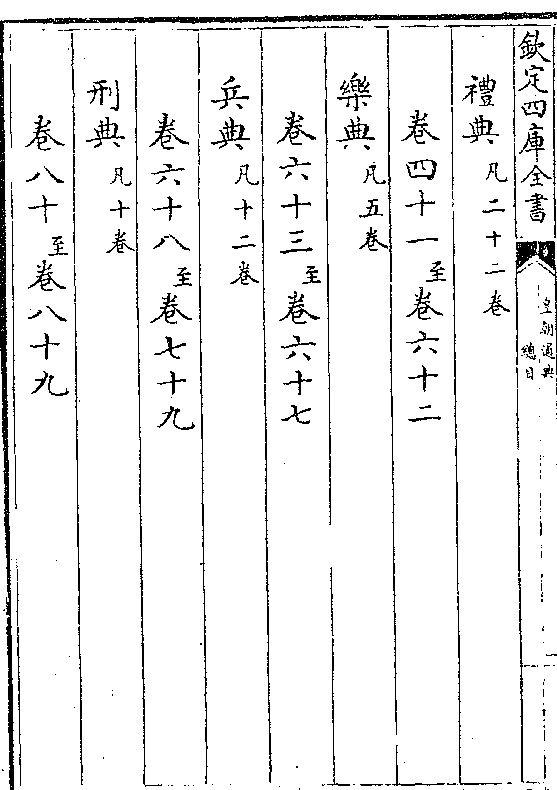 欽定四庫全書
皇朝通典
總目
禮典凡二十二卷
卷四十一至卷六十二
樂典凡五卷
卷六十三至卷六十七
兵典凡十二卷
卷六十八至卷七十九
刑典凡十卷
卷八十至卷八十九